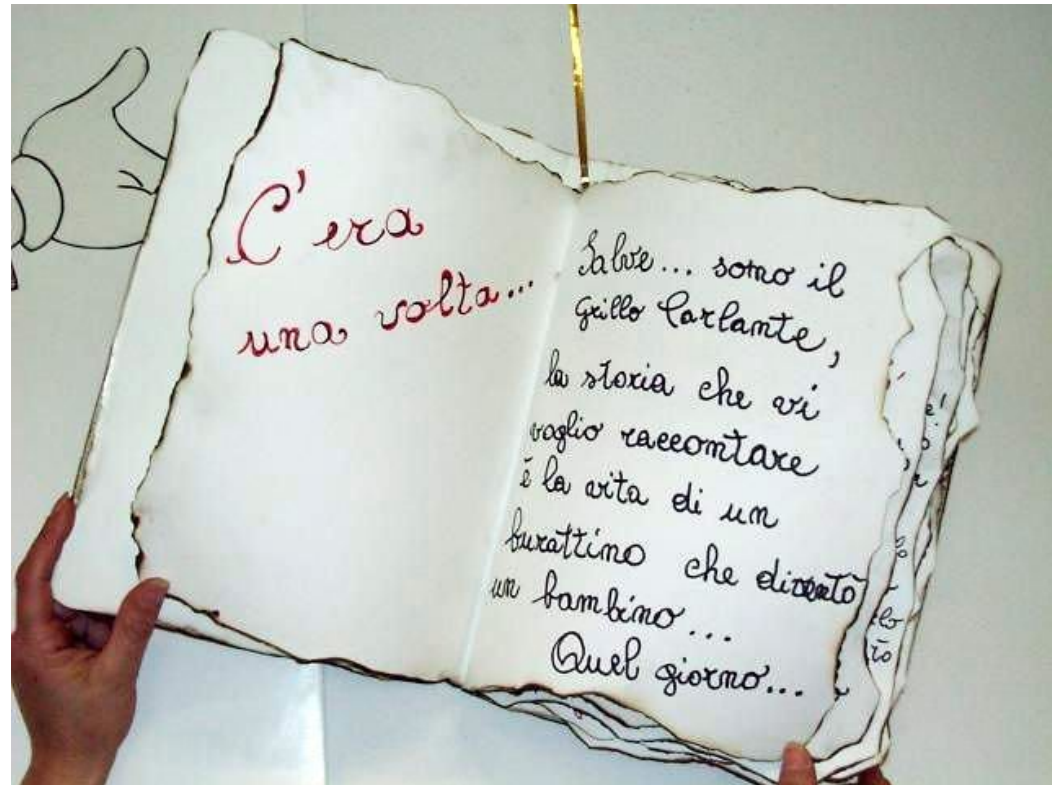 C'era
una volta...
Salve... sono il
Grillo Parlante,
la storia che vi
voglio raccontare
è la vita di un
burattino che diventò
un bambino...
Quel giorno...